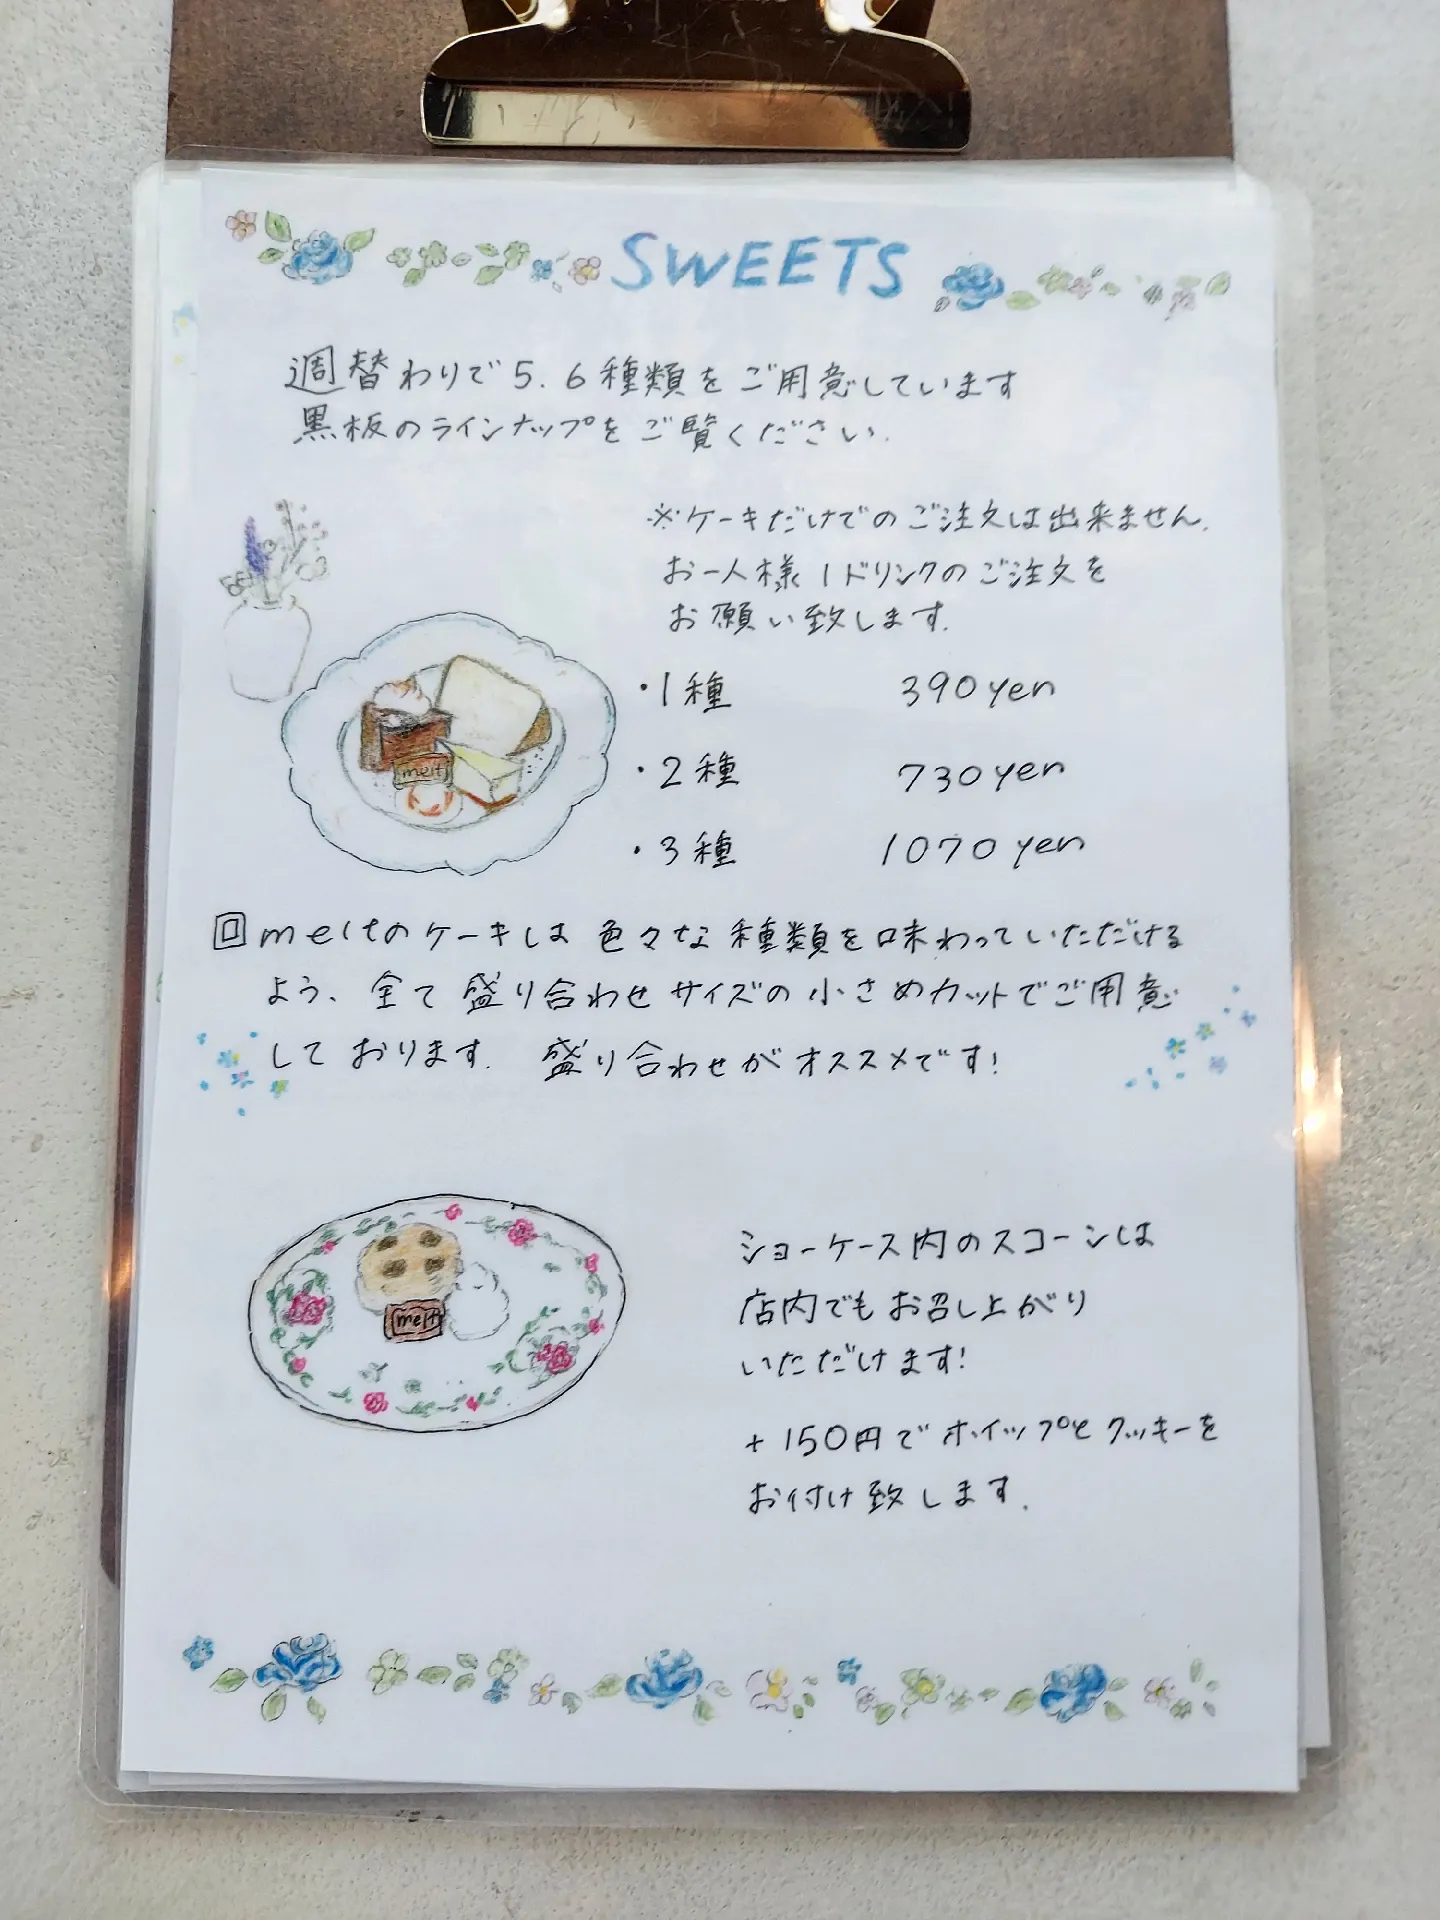 SWEETS
週替わりで5.6種類をご用意しています
黒板のラインナップをご覧ください.
※ケーキだけでのご注文は出来ません.
お一人様1ドリンクのご注文を
お願い致します.
・1種 390yen
・2種 730yen
・3種 1070yen
melt
回meltのケーキは色々な種類を味わっていただける
よう、全て盛り合わせサイズの小さめカットでご用意
しております. 盛り合わせがオススメです!
melt
ショーケース内のスコーンは
店内でもお召し上がり
いただけます!
+150円でホイップとクッキーを
お付け致します.